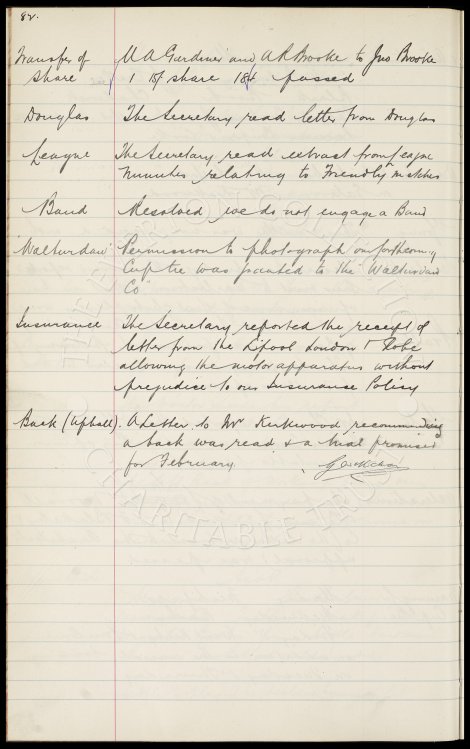 82.
Transfer of M A Gardiner and A R Brooke to Jno Brooke
Share 1 1st share 184 passed
Douglas The Secretary read letter from Douglas
League The Secretary read extract from League
Minutes relating to Friendly matches
Band Resolved we do not engage a Band
"Walturdaw" Permission to photograph our forthcoming
Cup tie was granted to the "Walturdaw
Co"
Insurance The Secretary reported the receipt of
letter from the Lipool London & Globe
allowing the motor apparatus without
prejudice to our Insurance Policy
Back (Uphall). A Letter to Mr Kirkwood recommending
a back was read & a trial promised
for February.
THE EVERTON COLLECTION
CHARITABLE TRUST